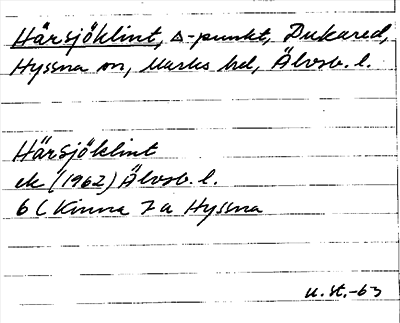 Härsjöklint, △-punkt, Dukared,
Hyssna sn, Marks hd, Älvsb. l.
Härsjöklint
ek (1962) Älvsb. l.
6 C Kinna 7a Hyssna
u. st. -63